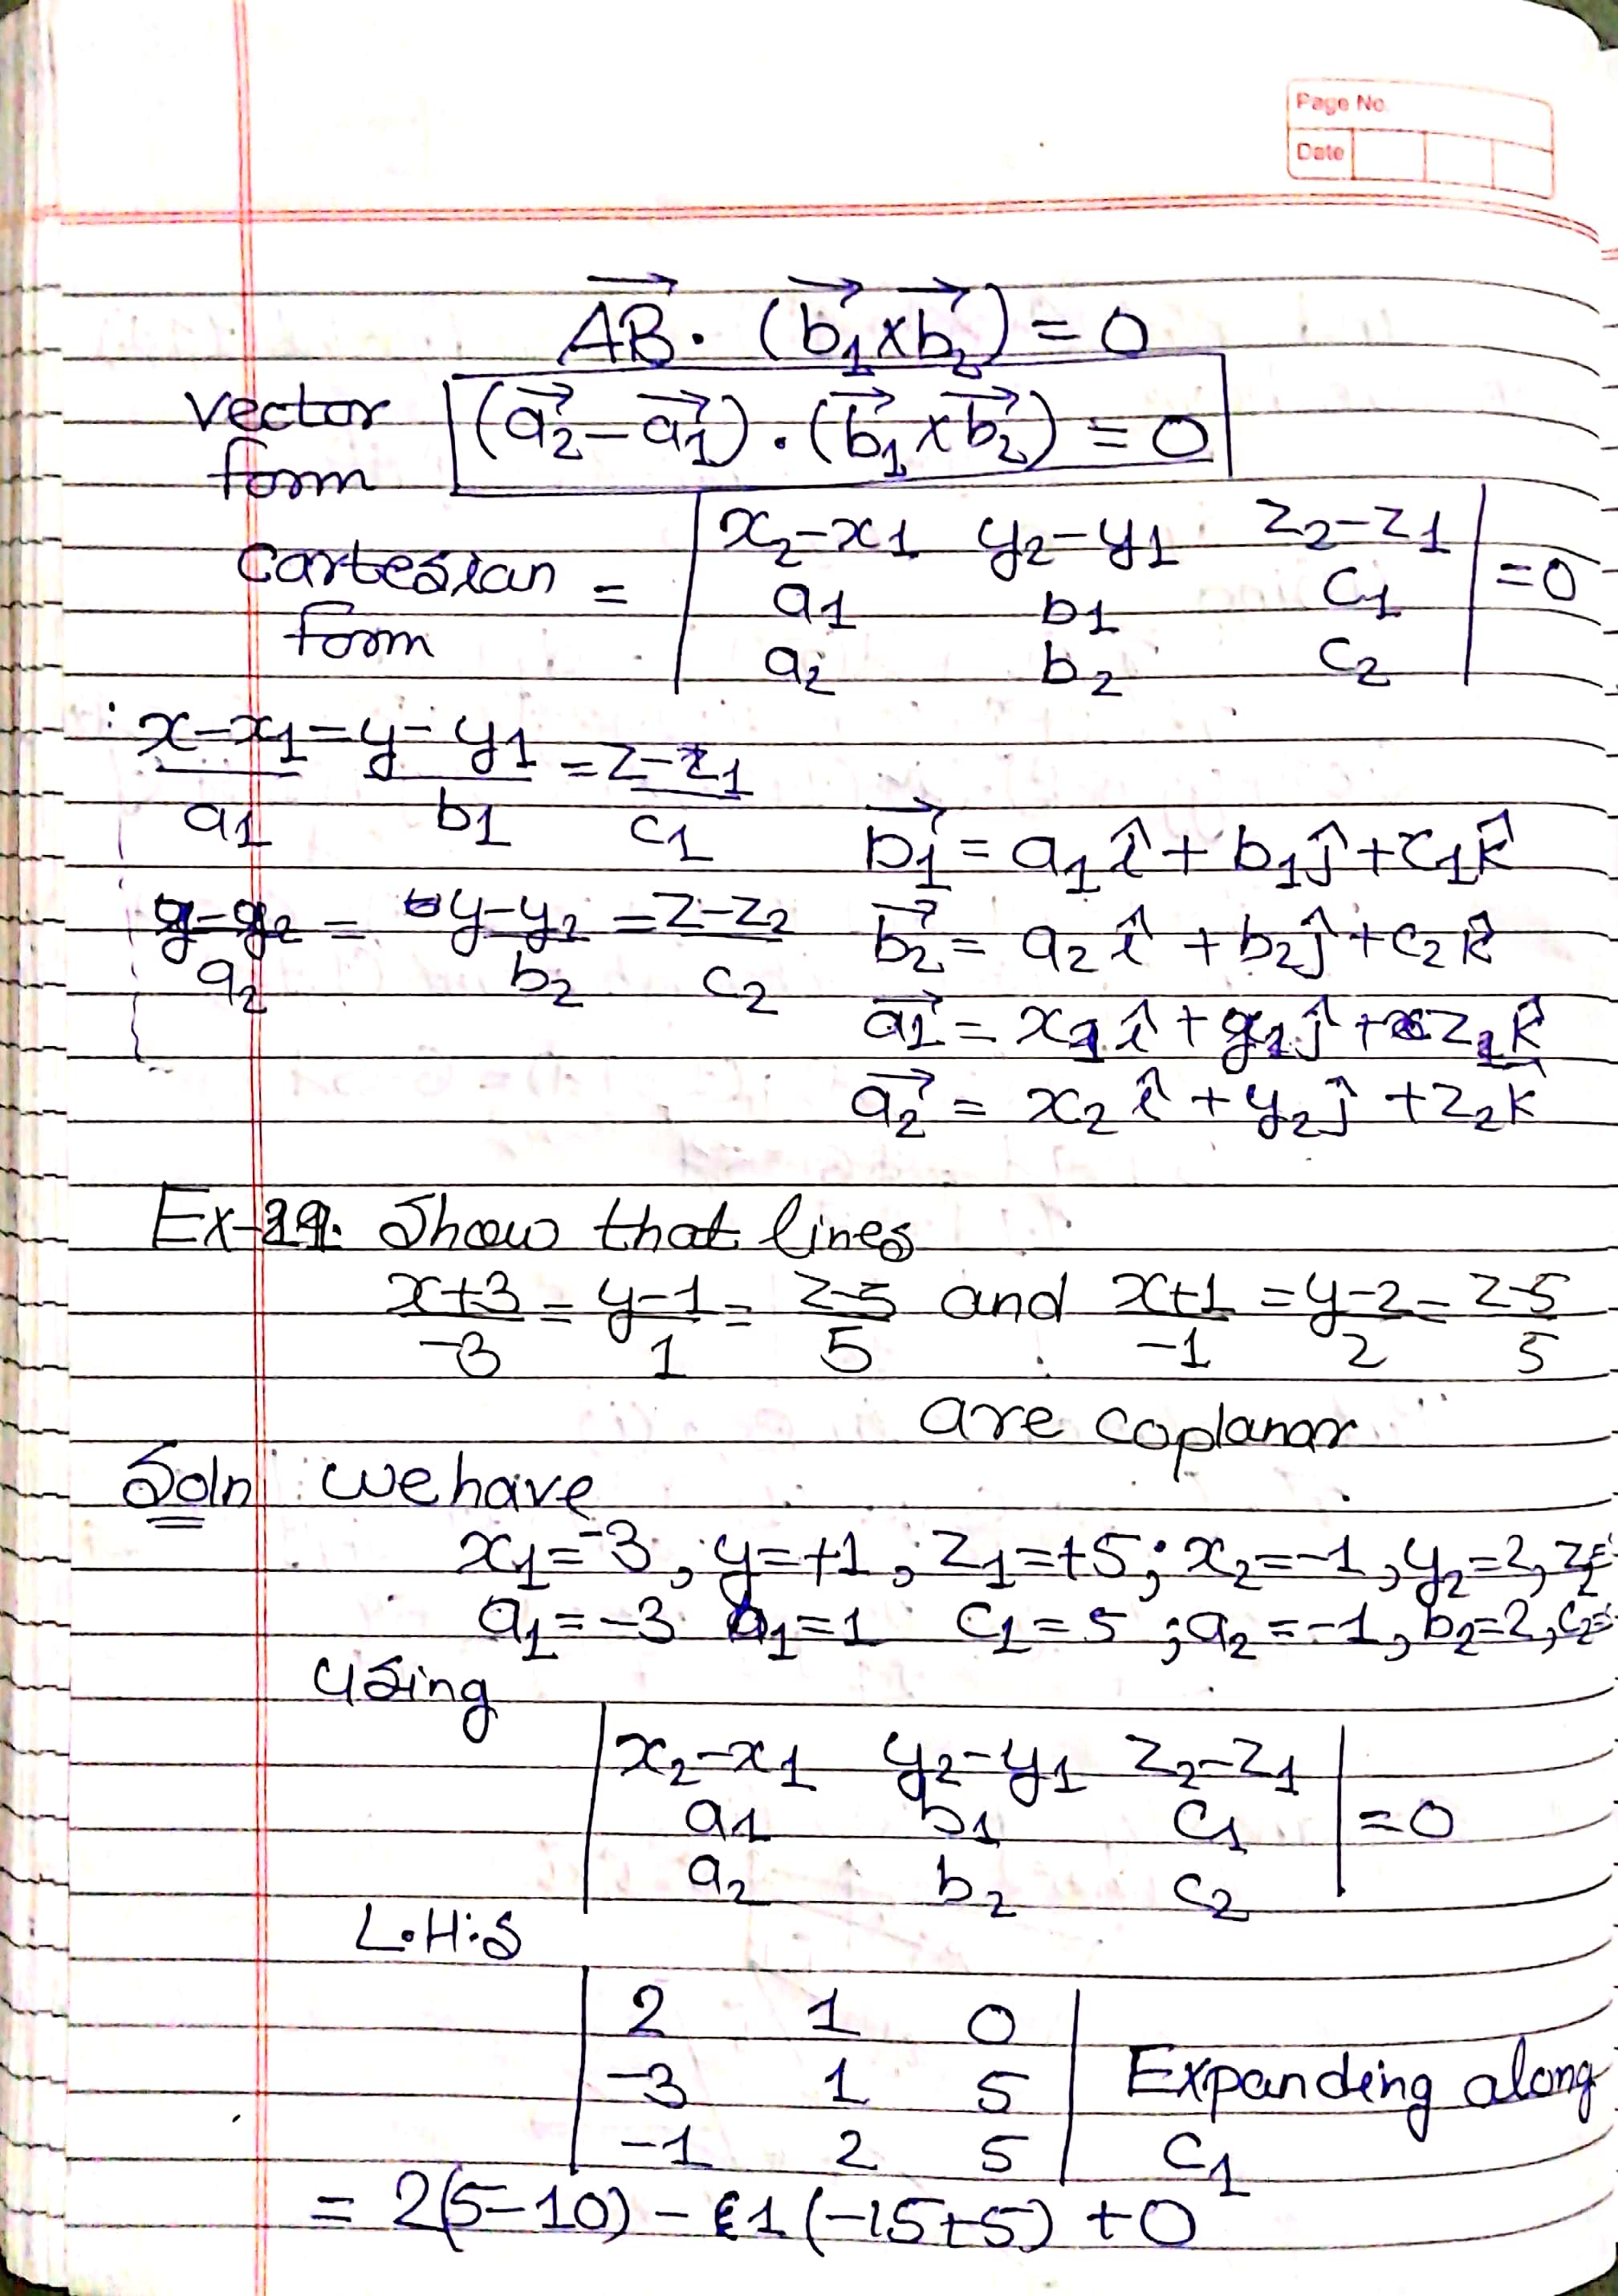 Page No.
Date
AB⃗ · (b₁⃗ × b₂⃗) = 0
vector form (a₂⃗ − a₁⃗) · (b₁⃗ × b₂⃗) = 0
cartesian form = | x₂−x₁ y₂−y₁ z₂−z₁ |
| a₁ b₁ c₁ | = 0
| a₂ b₂ c₂ |
(x−x₁)/a₁ = (y−y₁)/b₁ = (z−z₁)/c₁
b₁⃗ = a₁î + b₁ĵ + c₁k̂
(y−y₂)/a₂ = (y−y₂)/b₂ = (z−z₂)/c₂
b₂⃗ = a₂î + b₂ĵ + c₂k̂
a₁⃗ = x₁î + y₁ĵ + z₁k̂
a₂⃗ = x₂î + y₂ĵ + z₂k
Ex-29. Show that lines
(x+3)/−3 = (y−1)/1 = (z−5)/5 and (x+1)/−1 = (y−2)/2 = (z−5)/5
are coplanar
Soln we have
x₁ = −3, y = +1, z₁ = +5; x₂ = −1, y₂ = 2, z₂ =
a₁ = −3 b₁ = 1 c₁ = 5; a₂ = −1, b₂ = 2, c₂ =
using
| x₂−x₁ y₂−y₁ z₂−z₁ |
| a₁ b₁ c₁ | = 0
| a₂ b₂ c₂ |
L.H.S
| 2 1 0 |
| −3 1 5 | Expanding along
| −1 2 5 | C₁
= 2(5−10) − 1(−15+5) + 0